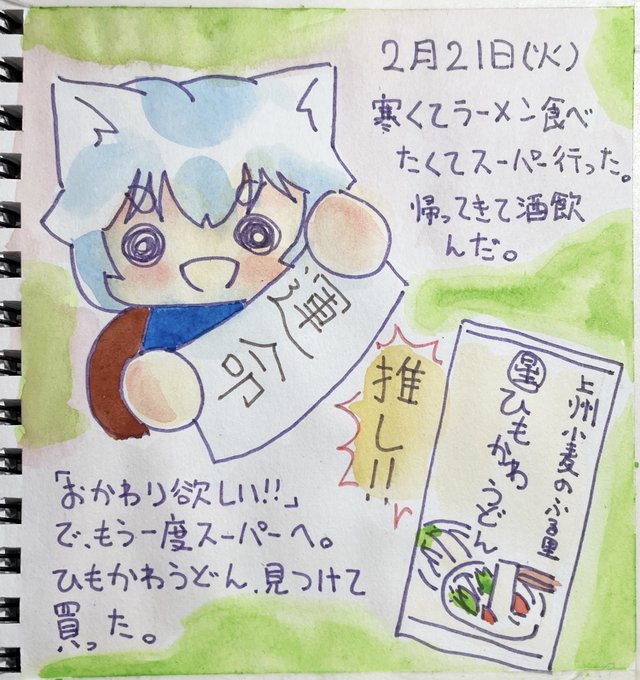 2月21日(火)
寒くてラーメン食べ
たくてスーパー行った。
帰ってきて酒飲
んだ。
運命
推し!!
上州小麦のふる里
星
ひもかわうどん
「おかわり欲しい!!」
で、もう一度スーパーへ。
ひもかわうどん、見つけて
買った。